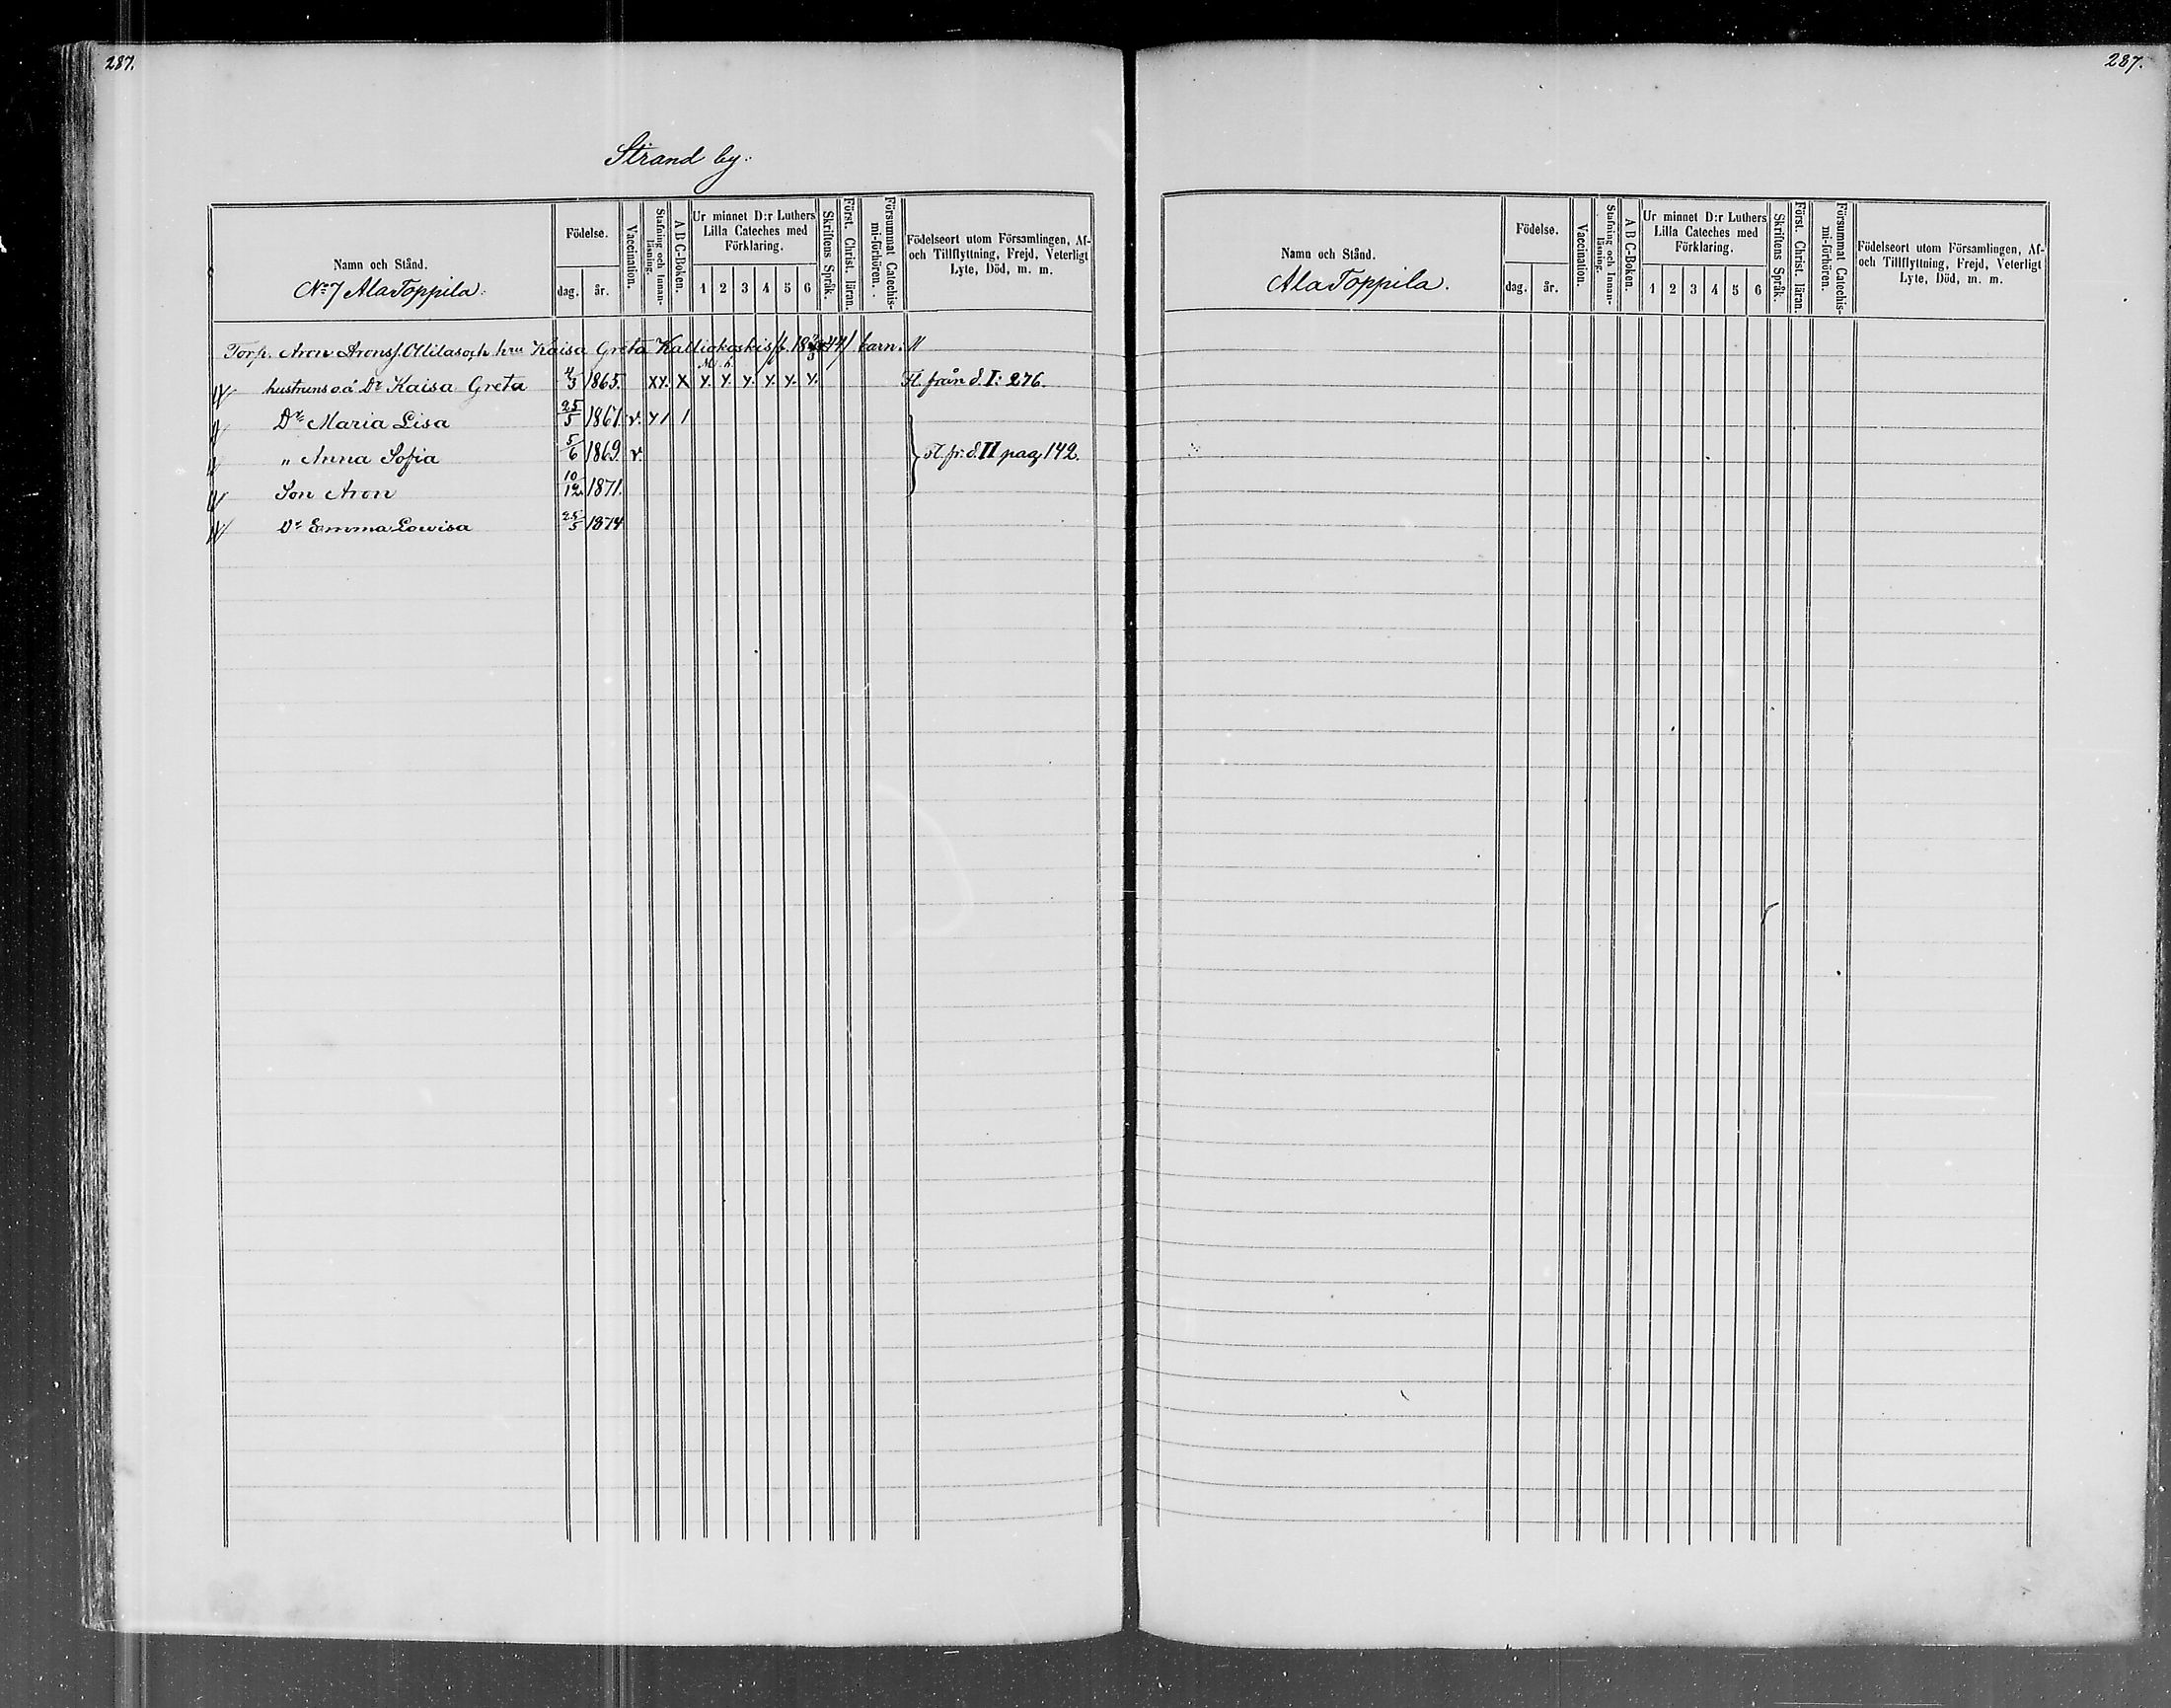 287.
Strand by:
Namn och Stånd.
No 7 Ala Toppila:
Födelse.
dag. år.
Vaccination.
Stafning och Innan-läsning.
A B C-Boken.
Ur minnet D:r Luthers
Lilla Cateches med
Förklaring.
1 2 3 4 5 6
Skriftens Språk.
Först. Christ. läran.
Försummat Catechis-mi-förhören.
Födelseort utom Församlingen, Af-
och Tillflyttning, Frejd, Veterligt
Lyte, Död, m. m.
Torp. Aron Aronss. och hru Kaisa Greta barn.
hustruns o.ä. Dr Kaisa Greta 4/3 1865. XY. X Y. Y. Y. Y. Y. Y. Fl. från d. I: 276.
Dr Maria Lisa 25/5 1867. v. Y / /
" Anna Sofia 5/6 1869. v. Fl. fr. d. II pag 142.
Son Aron 10/12 1871.
Dr Emma Lowisa 25/5 1874
287.
Namn och Stånd.
Ala Toppila.
Födelse.
dag. år.
Vaccination.
Stafning och Innan-läsning.
A B C-Boken.
Ur minnet D:r Luthers
Lilla Cateches med
Förklaring.
1 2 3 4 5 6
Skriftens Språk.
Först. Christ. läran.
Försummat Catechis-mi-förhören.
Födelseort utom Församlingen, Af-
och Tillflyttning, Frejd, Veterligt
Lyte, Död, m. m.